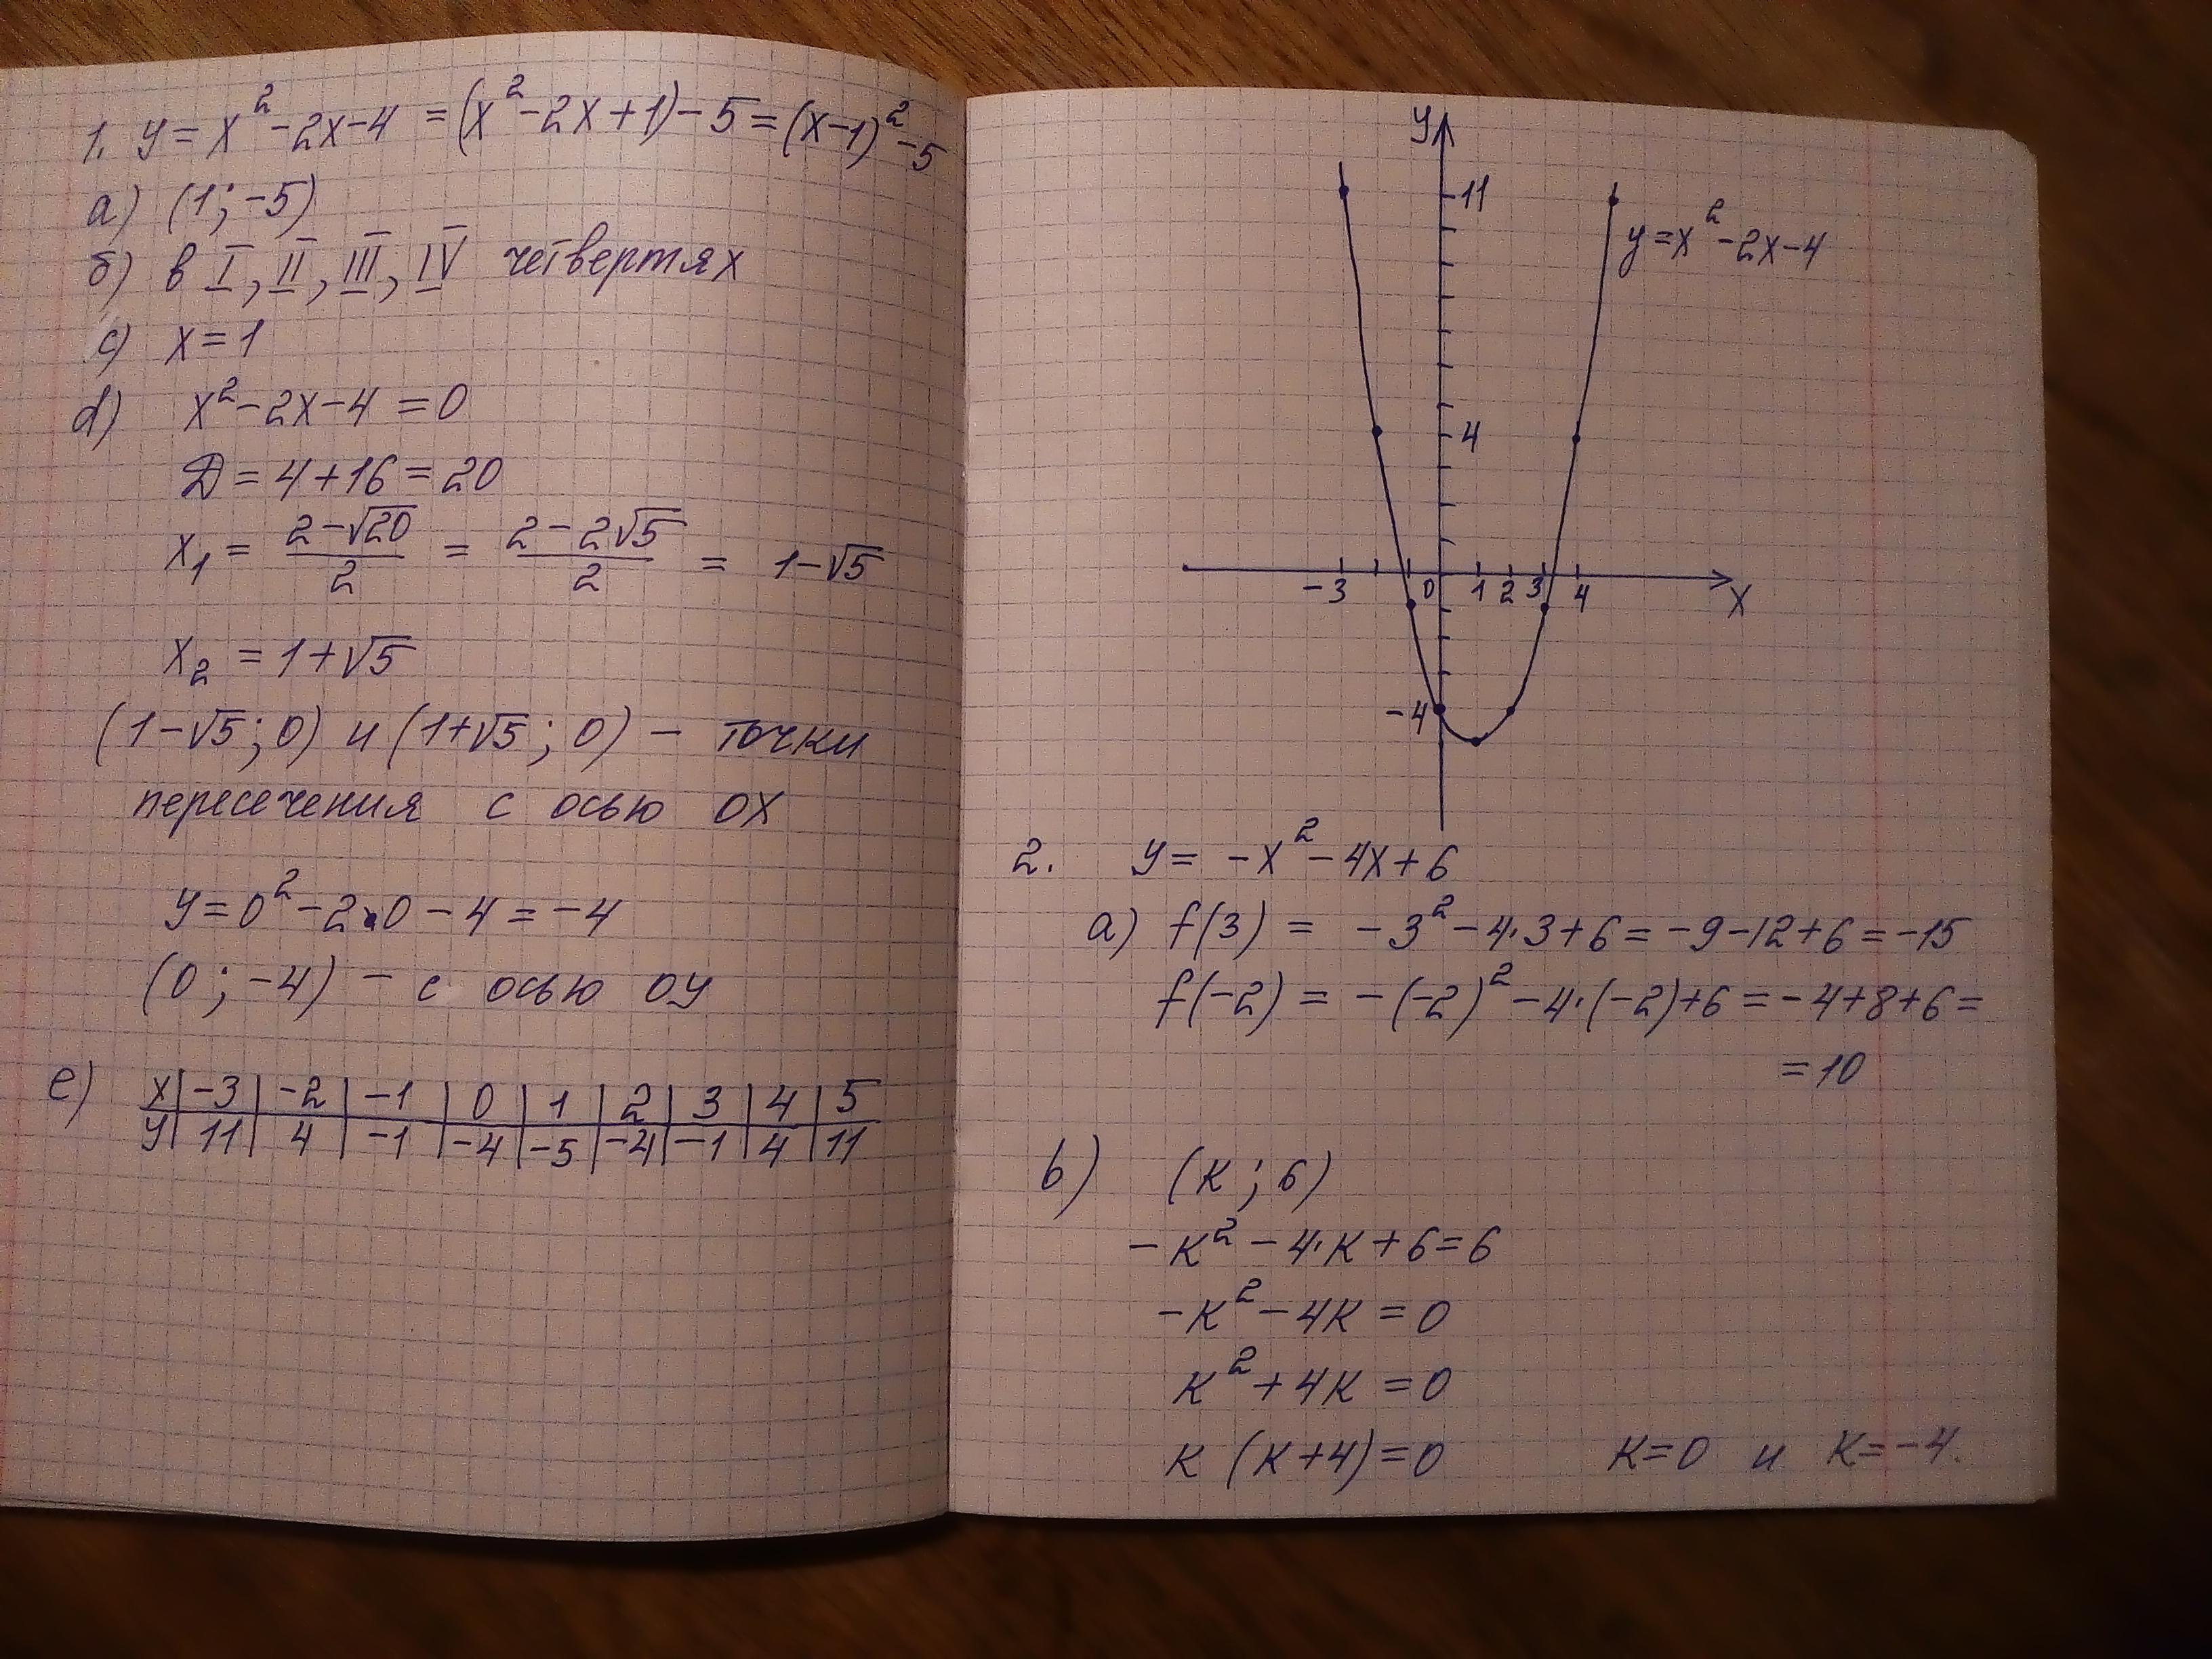 1. y = x² - 2x - 4 = (x² - 2x + 1) - 5 = (x - 1)² - 5
a) (1; -5)
б) в I, II, III, IV четвертях
c) x = 1
d) x² - 2x - 4 = 0
D = 4 + 16 = 20
x₁ = (2 - √20)/2 = (2 - 2√5)/2 = 1 - √5
x₂ = 1 + √5
(1 - √5; 0) и (1 + √5; 0) - точки
пересечения с осью OX
y = 0² - 2·0 - 4 = -4
(0; -4) - с осью OY
e) x | -3 | -2 | -1 | 0 | 1 | 2 | 3 | 4 | 5
y | 11 | 4 | -1 | -4 | -5 | -4 | -1 | 4 | 11
y
11
y = x² - 2x - 4
4
-3 0 1 2 3 4 x
-4
2. y = -x² - 4x + 6
a) f(3) = -3² - 4·3 + 6 = -9 - 12 + 6 = -15
f(-2) = -(-2)² - 4·(-2) + 6 = -4 + 8 + 6 =
= 10
b) (к; 6)
-к² - 4·к + 6 = 6
-к² - 4к = 0
к² + 4к = 0
к (к + 4) = 0 к = 0 и к = -4.